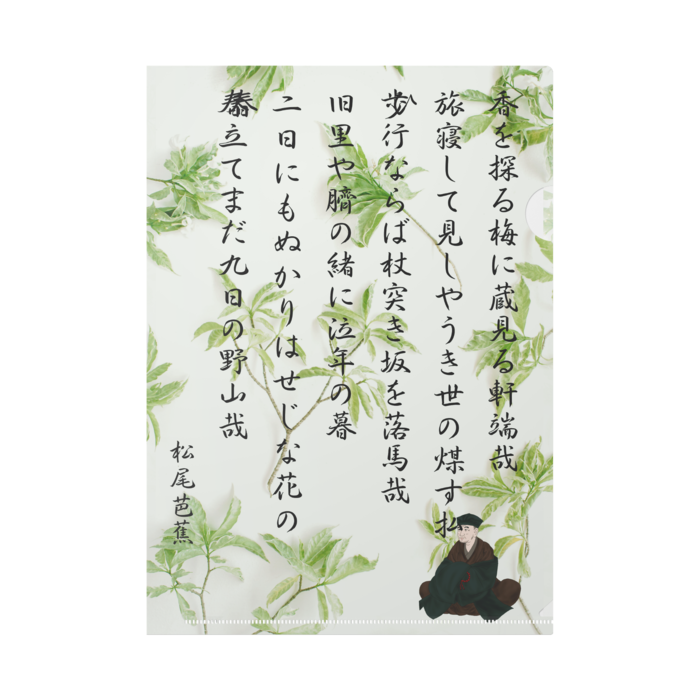 香を探る梅に蔵見る軒端哉
旅寝して見しやうき世の煤す払
歩行ならば杖突き坂を落馬哉
旧里や臍の緒に泣年の暮
二日にもぬかりはせじな花の
春立てまだ九日の野山哉
松尾芭蕉